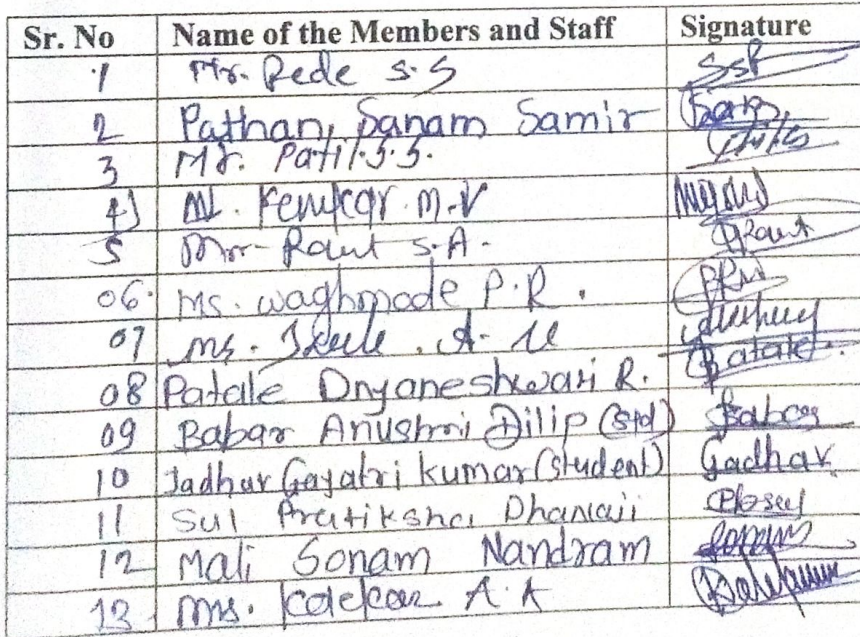 Sr. No Name of the Members and Staff Signature
1 Mr. Pede S.S SSP
2 Pathan, Sanam Samir
3 Mr. Patil.S.S.
4) Kemkar M.V
5 Raut S.A. Raut
06. Ms. Waghmode P.R.
07 Ms. A. U
08 Patale Dnyaneshwari R. Patale.
09 Babar Anushri Dilip (Std) Babar
10 Jadhav Gayatri kumar (student) Jadhav
11 Sul Pratiksha Dhanaji
12 Mali Sonam Nandram Sonam
13 Mrs. A.A